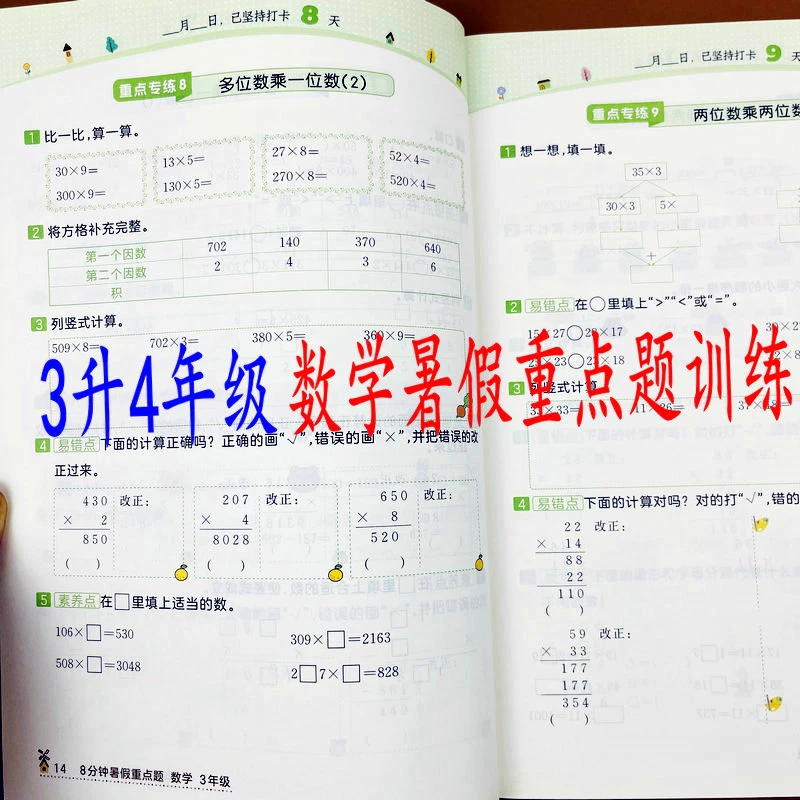 __月__日，已坚持打卡 8 天
重点专练8 多位数乘一位数(2)
1 比一比，算一算。
30×9= 13×5= 27×8= 52×4=
300×9= 130×5= 270×8= 520×4=
2 将方格补充完整。
第一个因数 702 140 370 640
第二个因数 2 4 3 6
积
3 列竖式计算。
509×8= 702×3= 380×5= 360×9=
3升4年级 数学暑假重点题训练
4 易错点 下面的计算正确吗？正确的画“√”，错误的画“×”，并把错误的改
正过来。
430 改正： 207 改正： 650 改正：
× 2 × 4 × 8
850 8028 520
( ) ( ) ( )
5 素养点 在□里填上适当的数。
106×□=530 309×□=2163
508×□=3048 2□7×□=828
14 8分钟暑假重点题 数学 3年级
__月__日，已坚持打卡 9 天
重点专练9 两位数乘两位数
1 想一想，填一填。
35×3
30×3 5×
+
2 易错点 在○里填上“>”“<”或“=”。
×27○28×17
×23○23×18
3 列竖式计算
33×33= 11×26= 37×18=
4 易错点 下面的计算对吗？对的打“√”，错的
22 改正：
× 14
88
22
110
( )
59 改正：
× 33
177
177
354
( )